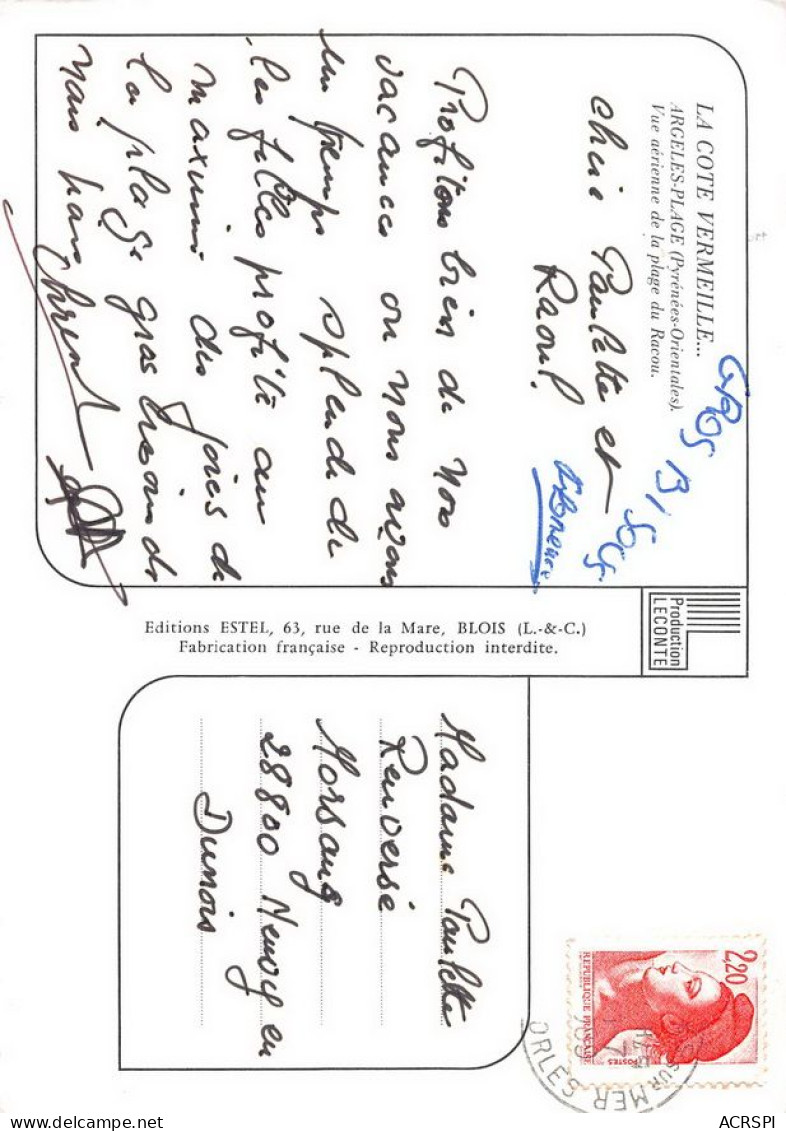 LA COTE VERMEILLE...
ARGELES-PLAGE (Pyrénées-Orientales).
Vue aérienne de la plage du Racou.
chère Paulette et
Raoul.
Profitons bien de nos
vacances ou nous avons
un temps splendide
les filles profite au
maximum des joies de
la plage gros bisous de
nous
GROS BISOUS
Production
LECONTE
Editions ESTEL, 63, rue de la Mare, BLOIS (L.-&-C.)
Fabrication française - Reproduction interdite.
Madame Paulette
Renversé
Morsang
28800 Neuvy en
Dunois
2,20
REPUBLIQUE FRANÇAISE
POSTES
SUR MER
ORLES
ACRSPI